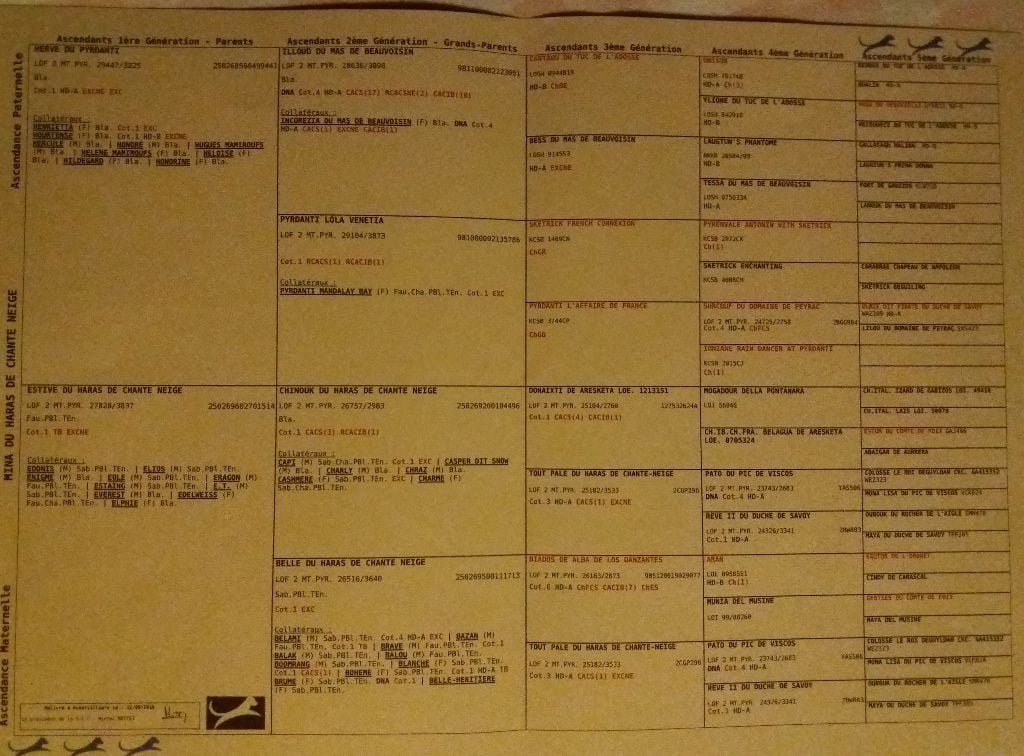 Ascendants 1ère Génération - Parents
Ascendants 2ème Génération - Grands-Parents
Ascendants 3ème Génération
Ascendants 4ème Génération
Ascendants 5ème Génération
Ascendance Paternelle
MINA DU HARAS DE CHANTE NEIGE
Ascendance Maternelle
HERVE DU PYRDANTI
LOF 2 MT.PYR. 29447/3225
250268500499441
Bla.
Cot.1 HD-A EXCNE EXC
Collatéraux :
HENRIETTA (F) Bla. Cot.1 EXC
HOURTENSE (F) Bla. Cot.1 HD-B EXCNE
HERCULE (M) Bla. | HONORE (M) Bla. | HUGUES MAMIROUFS
(M) Bla. | HELENE MAMIROUFS (F) Bla. | HELOISE (F)
Bla. | HILDEGARD (F) Bla. | HONORINE (F) Bla.
ESTIVE DU HARAS DE CHANTE NEIGE
LOF 2 MT.PYR. 27828/3837
250269602701514
Fau.PBl.TEn.
Cot.1 TB EXCNE
Collatéraux :
EDONIS (M) Sab.PBl.TEn. | ELIOS (M) Sab.PBl.TEn.
ENIGME (M) Bla. | EOLE (M) Sab.PBl.TEn. | ERAGON (M)
Fau.PBl.TEn. | ESTAING (M) Sab.PBl.TEn. | E.T. (M)
Sab.PBl.TEn. | EVEREST (M) Bla. | EDELWEISS (F)
Fau.Cha.PBl.TEn. | ELPHIE (F) Bla.
ILLOUD DU MAS DE BEAUVOISIN
LOF 2 MT.PYR. 28636/3098
981100002223051
Bla.
DNA Cot.4 HD-A CACS(17) RCACSNE(2) CACIB(10)
Collatéraux :
INCOREZIA DU MAS DE BEAUVOISIN (F) Bla. DNA Cot.4
HD-A CACS(1) EXCNE CACIB(1)
PYRDANTI LOLA VENETIA
LOF 2 MT.PYR. 29104/3873
981000002135786
Cot.1 RCACS(1) RCACIB(1)
Collatéraux :
PYRDANTI MANDALAY BAY (F) Fau.Cha.PBl.TEn. Cot.1 EXC
CHINOUK DU HARAS DE CHANTE NEIGE
LOF 2 MT.PYR. 26757/2983
250269200104496
Bla.
Cot.1 CACS(3) RCACIB(1)
Collatéraux :
CAPI (M) Sab.Cha.PBl.TEn. Cot.1 EXC | CASPER DIT SNOW
(M) Bla. | CHARLY (M) Bla. | CHRAZ (M) Bla.
CASHMERE (F) Sab.PBl.TEn. EXC | CHARME (F)
Sab.Cha.PBl.TEn.
BELLE DU HARAS DE CHANTE NEIGE
LOF 2 MT.PYR. 26516/3640
250269500111713
Sab.PBl.TEn.
Cot.1 EXC
Collatéraux :
BELAMI (M) Sab.PBl.TEn. Cot.4 HD-A EXC | BAZAN (M)
Fau.PBl.TEn. Cot.1 TB | BRAVE (M) Fau.PBl.TEn. Cot.1
BALAK (M) Sab.PBl.TEn. | BALOU (M) Fau.PBl.TEn.
BOOMRANG (M) Sab.PBl.TEn. | BLANCHE (F) Sab.PBl.TEn.
Cot.1 CACS(1) | BOHEME (F) Sab.PBl.TEn. Cot.1 HD-A TB
BRUME (F) Sab.PBl.TEn. DNA Cot.1 | BELLE-HERITIERE
(F) Sab.PBl.TEn.
CANTBOU DU TUC DE L'ADOSSE
LOSH 0944819
HD-B ChBE
BESS DU MAS DE BEAUVOISIN
LOSH 914553
HD-A EXCNE
SKETRICK FRENCH CONNEXION
KCSB 1469CN
ChGB
PYRDANTI L'AFFAIRE DE FRANCE
KCSB 3744CP
ChGB
DONAIXTI DE ARESKETA LOE. 1213151
LOF 2 MT.PYR. 25104/2760
127532624A
Cot.1 CACS(4) CACIB(1)
TOUT PALE DU HARAS DE CHANTE-NEIGE
LOF 2 MT.PYR. 25182/3533
2CGP296
Cot.3 HD-A CACS(1) EXCNE
BIADOS DE ALBA DE LOS DANZANTES
LOF 2 MT.PYR. 26163/2873
985120019029077
Cot.6 HD-A ChFCS CACIB(7) ChES
TOUT PALE DU HARAS DE CHANTE-NEIGE
LOF 2 MT.PYR. 25182/3533
2CGP296
Cot.3 HD-A CACS(1) EXCNE
YLIONE DU TUC DE L'ADOSSE
HD-B
LAUGTUN'S PHANTOME
NHKB 20504/99
HD-B
TESSA DU MAS DE BEAUVOISIN
LOSH 0756334
HD-A
PYRENVALE ANTONIN WITH SKETRICK
KCSB 2972CK
Ch(1)
SKETRICK ENCHANTING
KCSB 4008CM
SURCOUF DU DOMAINE DE PEYRAC
LOF 2 MT.PYR. 24726/2758
2BGG984
Cot.4 HD-A ChFCS
IONZANE RAIN DANCER AT PYRDANTI
KCSB 2015CJ
Ch(1)
MOGADOUR DELLA PONTAHARA
LOI 66046
CH.IB.CH.FRA. BELAGUA DE ARESKETA
LOE. 0705324
PATO DU PIC DE VISCOS
LOF 2 MT.PYR. 23743/2683
YAS506
DNA Cot.4 HD-A
REVE II DU DUCHE DE SAVOY
LOF 2 MT.PYR. 24326/3341
2MW883
Cot.1 HD-A
ARAN
LOE 0958551
HD-B Ch(1)
MUNIA DEL MUSINE
LOI 99/80260
PATO DU PIC DE VISCOS
LOF 2 MT.PYR. 23743/2683
YAS506
DNA Cot.4 HD-A
REVE II DU DUCHE DE SAVOY
LOF 2 MT.PYR. 24326/3341
2MW883
Cot.1 HD-A
LAUGTUN'S PRIMA DONNA
LAMOUR DU MAS DE BEAUVOISIN
CARABRAS CHAPEAU DE NAPOLEON
SKETRICK BEGUILING
LILOU DU DOMAINE DE PEYRAC
CH.ITAL. IZARD DE GABIZOS LOI.
CH.ITAL. LAIS LOI. 50078
ABAIGAN DE AURRERA
COLOSSE LE ROI DEGUYLDAN CKC. GA415352
WE2323
MONA LISA DU PIC DE VISCOS
OUROUK DU ROCHER DE L'AIGLE
MAYA DU DUCHE DE SAVOY
CINDY DE CARASCAL
MAYA DEL MUSINE
COLOSSE LE ROI DEGUYLDAN CKC. GA415352
WE2323
MONA LISA DU PIC DE VISCOS
OUROUK DU ROCHER DE L'AIGLE
MAYA DU DUCHE DE SAVOY